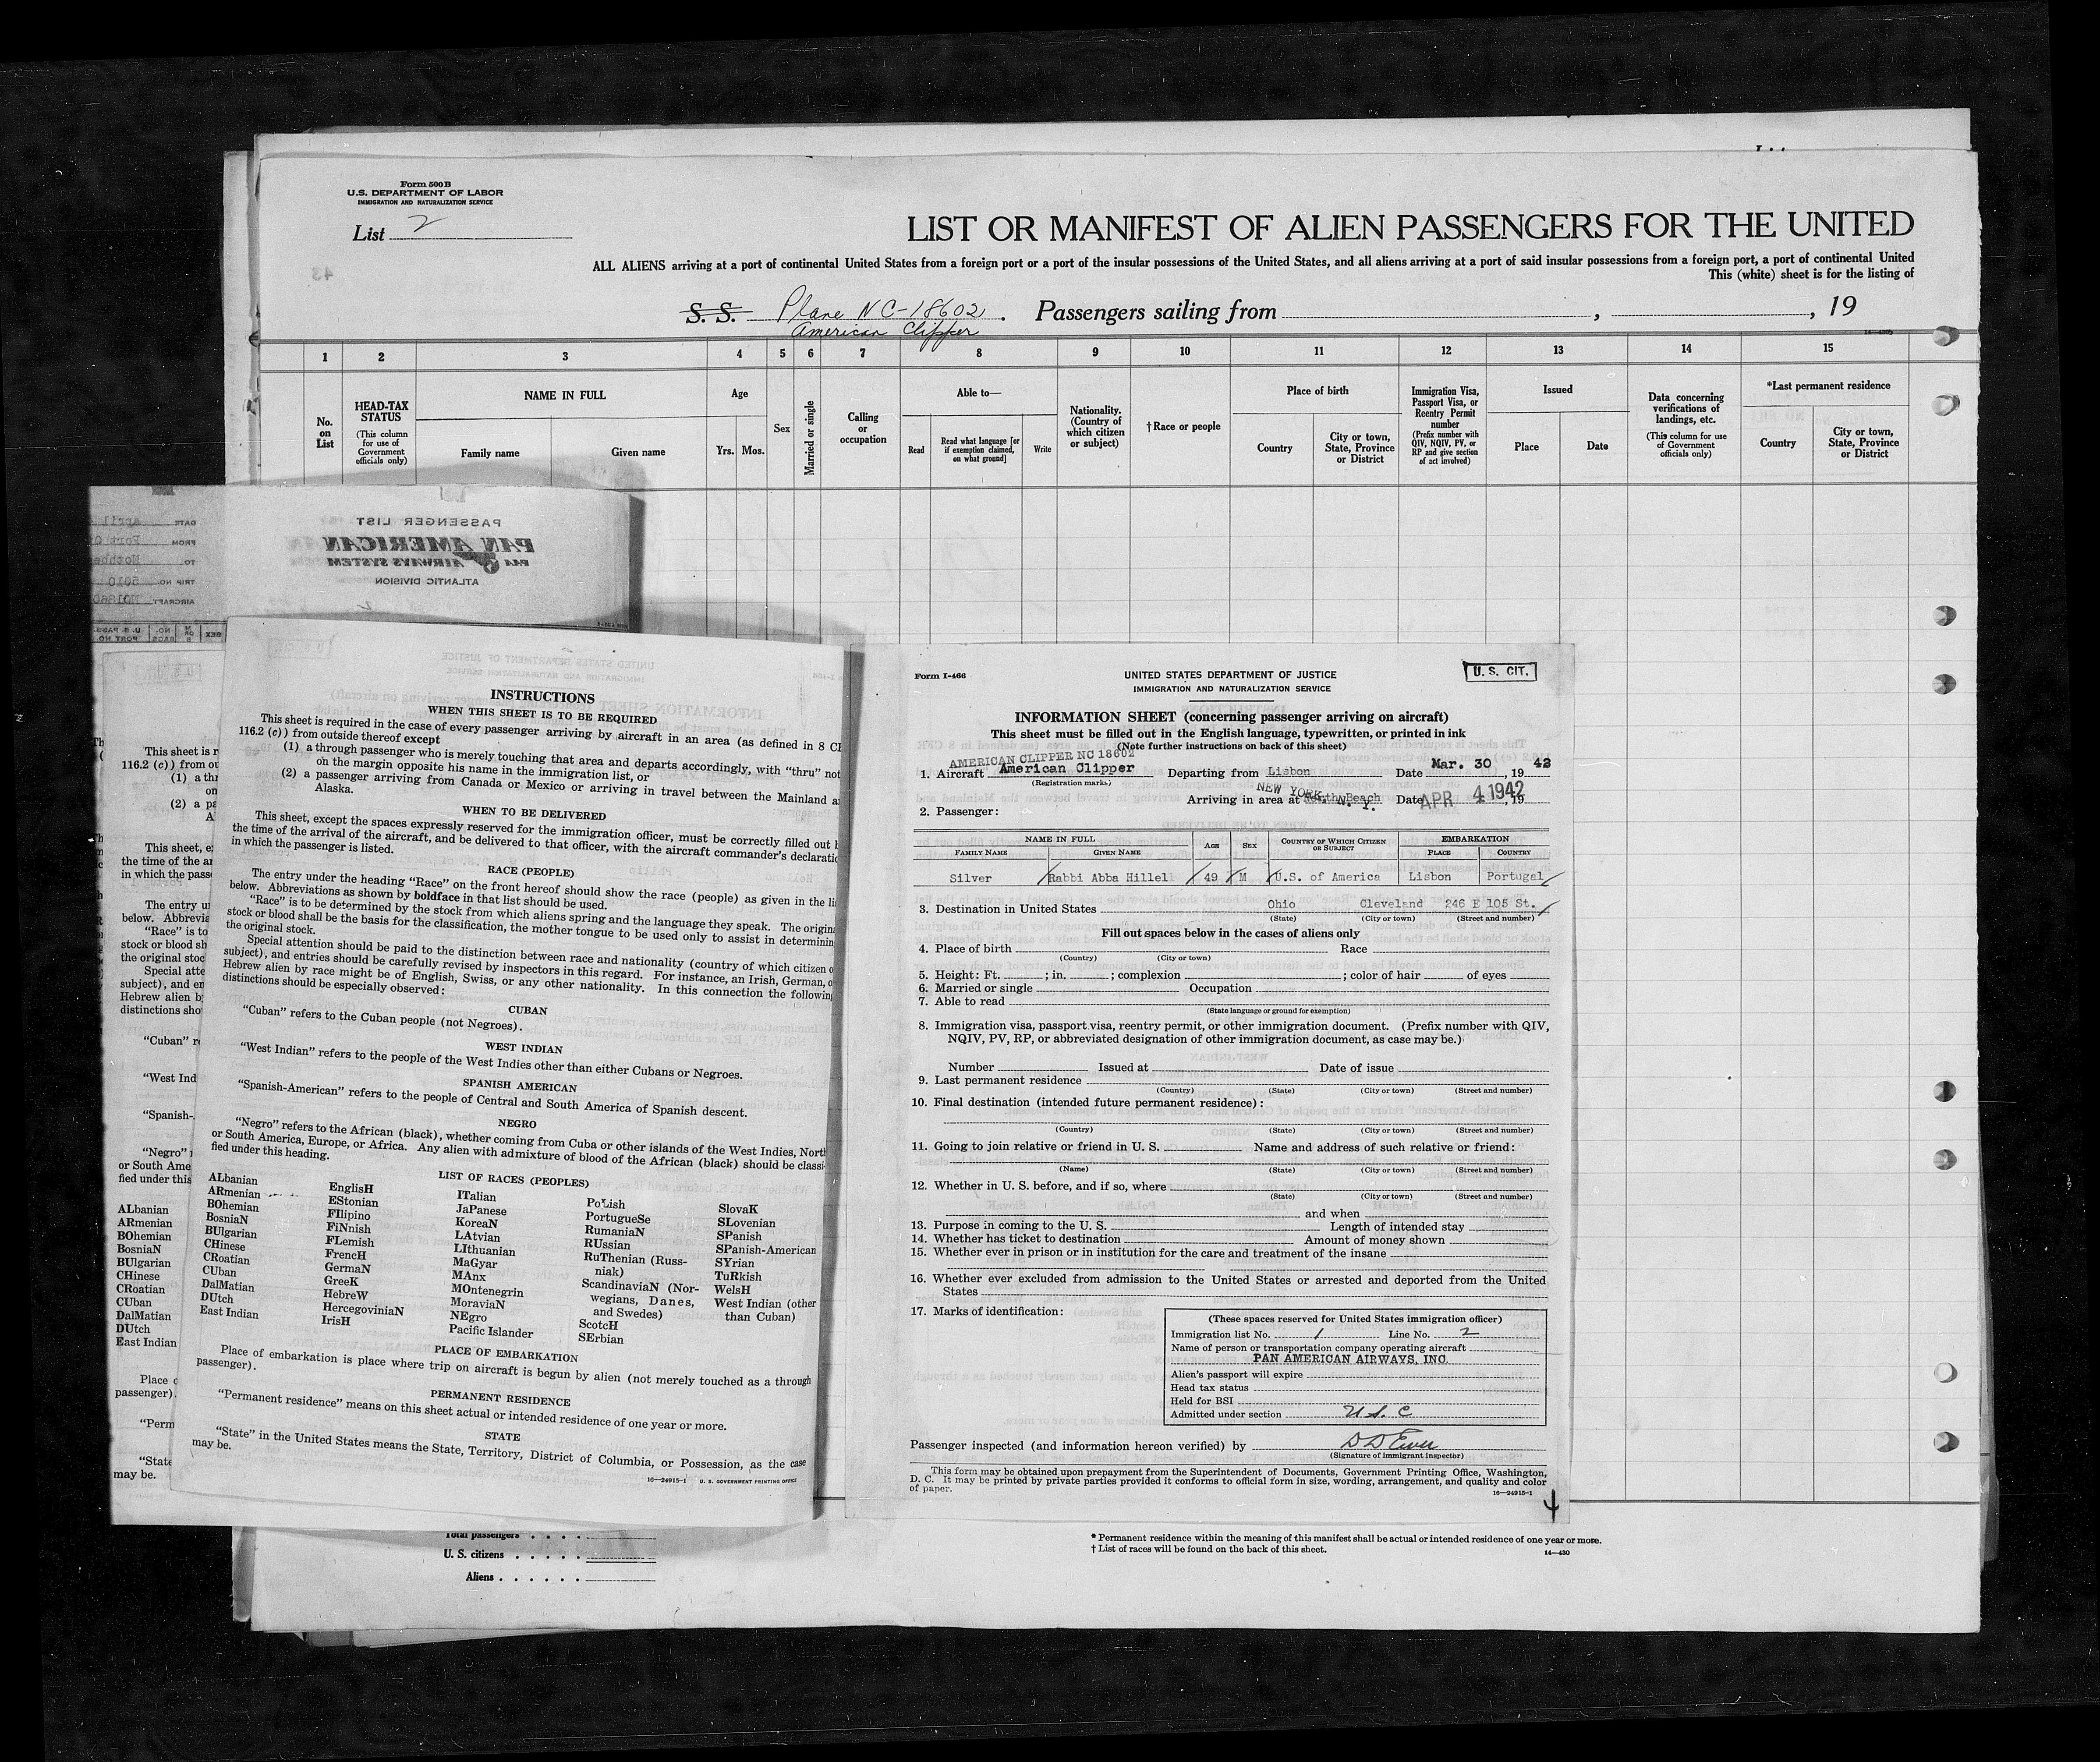 Form 500B
U.S. DEPARTMENT OF LABOR
IMMIGRATION AND NATURALIZATION SERVICE
List 2
LIST OR MANIFEST OF ALIEN PASSENGERS FOR THE UNITED
ALL ALIENS arriving at a port of continental United States from a foreign port or a port of the insular possessions of the United States, and all aliens arriving at a port of said insular possessions from a foreign port, a port of continental United
This (white) sheet is for the listing of
S. S. Plane NC-18602. Passengers sailing from , , 19
American Clipper
1 2 3 4 5 6 7 8 9 10 11 12 13 14 15
No. on List
HEAD-TAX STATUS
(This column for use of Government officials only)
NAME IN FULL
Family name Given name
Age
Yrs. Mos.
Sex
Married or single
Calling or occupation
Able to—
Read
Read what language [or if exemption claimed, on what ground]
Write
Nationality. (Country of which citizen or subject)
†Race or people
Place of birth
Country
City or town, State, Province or District
Immigration Visa, Passport Visa, or Reentry Permit number
(Prefix number with QIV, NQIV, PV, or RP and give section of act involved)
Issued
Place Date
Data concerning verifications of landings, etc.
(This column for use of Government officials only)
*Last permanent residence
Country
City or town, State, Province or District
PASSENGER LIST
PAN AMERICAN
PAA AIRWAYS SYSTEM
ATLANTIC DIVISION
DATE April
FROM
TO
TRIP NO. 5010
AIRCRAFT
INSTRUCTIONS
WHEN THIS SHEET IS TO BE REQUIRED
This sheet is required in the case of every passenger arriving by aircraft in an area (as defined in 8 CF
116.2 (c)) from outside thereof except
(1) a through passenger who is merely touching that area and departs accordingly, with "thru" not
on the margin opposite his name in the immigration list, or
(2) a passenger arriving from Canada or Mexico or arriving in travel between the Mainland a
Alaska.
WHEN TO BE DELIVERED
This sheet, except the spaces expressly reserved for the immigration officer, must be correctly filled out b
the time of the arrival of the aircraft, and be delivered to that officer, with the aircraft commander's declaratio
in which the passenger is listed.
RACE (PEOPLE)
The entry under the heading "Race" on the front hereof should show the race (people) as given in the li
below. Abbreviations as shown by boldface in that list should be used.
"Race" is to be determined by the stock from which aliens spring and the language they speak. The origina
stock or blood shall be the basis for the classification, the mother tongue to be used only to assist in determining
the original stock.
Special attention should be paid to the distinction between race and nationality (country of which citizen o
subject), and entries should be carefully revised by inspectors in this regard. For instance, an Irish, German, o
Hebrew alien by race might be of English, Swiss, or any other nationality. In this connection the following
distinctions should be especially observed:
CUBAN
"Cuban" refers to the Cuban people (not Negroes).
WEST INDIAN
"West Indian" refers to the people of the West Indies other than either Cubans or Negroes.
SPANISH AMERICAN
"Spanish-American" refers to the people of Central and South America of Spanish descent.
NEGRO
"Negro" refers to the African (black), whether coming from Cuba or other islands of the West Indies, North
or South America, Europe, or Africa. Any alien with admixture of blood of the African (black) should be classi-
fied under this heading.
LIST OF RACES (PEOPLES)
ALbanian
ARmenian
BOhemian
BosniaN
BUlgarian
CHinese
CRoatian
CUban
DalMatian
DUtch
East Indian
EnglisH
EStonian
FIlipino
FiNnish
FLemish
FrencH
GermaN
GreeK
HebreW
HercegoviniaN
IrisH
ITalian
JaPanese
KoreaN
LAtvian
LIthuanian
MaGyar
MAnx
MOntenegrin
MoraviaN
NEgro
Pacific Islander
PoLish
PortugueSe
RumaniaN
RUssian
RuThenian (Russ-
niak)
ScandinaviaN (Nor-
wegians, Danes,
and Swedes)
ScotcH
SErbian
SlovaK
SLovenian
SPanish
SPanish-American
SYrian
TuRkish
WelsH
West Indian (other
than Cuban)
PLACE OF EMBARKATION
Place of embarkation is place where trip on aircraft is begun by alien (not merely touched as a through
passenger).
PERMANENT RESIDENCE
"Permanent residence" means on this sheet actual or intended residence of one year or more.
STATE
"State" in the United States means the State, Territory, District of Columbia, or Possession, as the case
may be.
16—24915-1 U. S. GOVERNMENT PRINTING OFFICE
This sheet is r
116.2 (c)) from ou
(1) a thr
on
(2) a pa
A
This sheet, e
the time of the ar
in which the pass
The entry u
below. Abbrevia
"Race" is to
stock or blood sh
the original stoc
Special atte
subject), and en
Hebrew alien b
distinctions sho
"Cuban" r
"West Ind
"Spanish-
"Negro" r
or South Ame
fied under this
ALbanian
ARmenian
BOhemian
BosniaN
BUlgarian
CHinese
CRoatian
CUban
DalMatian
DUtch
East Indian
Place o
passenger).
"Perm
"State
may be.
Form I-466
UNITED STATES DEPARTMENT OF JUSTICE
IMMIGRATION AND NATURALIZATION SERVICE
U. S. CIT.
INFORMATION SHEET (concerning passenger arriving on aircraft)
This sheet must be filled out in the English language, typewritten, or printed in ink
(Note further instructions on back of this sheet)
AMERICAN CLIPPER NC 18602
1. Aircraft American Clipper Departing from Lisbon Date Mar. 30, 19 42
(Registration marks)
NEW YORK, N. Y.
Arriving in area at North Beach Date APR 4 1942, 19
2. Passenger:
NAME IN FULL
FAMILY NAME GIVEN NAME
AGE SEX
COUNTRY OF WHICH CITIZEN OR SUBJECT
EMBARKATION
PLACE COUNTRY
Silver Rabbi Abba Hillel 49 M U.S. of America Lisbon Portugal
3. Destination in United States Ohio Cleveland 246 E 105 St.
(State) (City or town) (Street and number)
Fill out spaces below in the cases of aliens only
4. Place of birth Race
(Country) (City or town)
5. Height: Ft. ; in. ; complexion ; color of hair of eyes
6. Married or single Occupation
7. Able to read
(State language or ground for exemption)
8. Immigration visa, passport visa, reentry permit, or other immigration document. (Prefix number with QIV,
NQIV, PV, RP, or abbreviated designation of other immigration document, as case may be.)
Number Issued at Date of issue
9. Last permanent residence
(Country) (State) (City or town) (Street and number)
10. Final destination (intended future permanent residence):
(Country) (State) (City or town) (Street and number)
11. Going to join relative or friend in U. S. Name and address of such relative or friend:
(Name) (State) (City or town) (Street and number)
12. Whether in U. S. before, and if so, where
(State) (City or town) (Street and number)
and when
13. Purpose in coming to the U. S. Length of intended stay
14. Whether has ticket to destination Amount of money shown
15. Whether ever in prison or in institution for the care and treatment of the insane
16. Whether ever excluded from admission to the United States or arrested and deported from the United
States
17. Marks of identification:
(These spaces reserved for United States immigration officer)
Immigration list No. 1 Line No. 2
Name of person or transportation company operating aircraft
PAN AMERICAN AIRWAYS, INC.
Alien's passport will expire
Head tax status
Held for BSI
Admitted under section U.S.C
Passenger inspected (and information hereon verified) by
(Signature of immigrant inspector)
This form may be obtained upon prepayment from the Superintendent of Documents, Government Printing Office, Washington,
D. C. It may be printed by private parties provided it conforms to official form in size, wording, arrangement, and quality and color
of paper.
16—24915-1
4
Total passengers
U. S. citizens
Aliens
* Permanent residence within the meaning of this manifest shall be actual or intended residence of one year or more.
† List of races will be found on the back of this sheet.
14—430